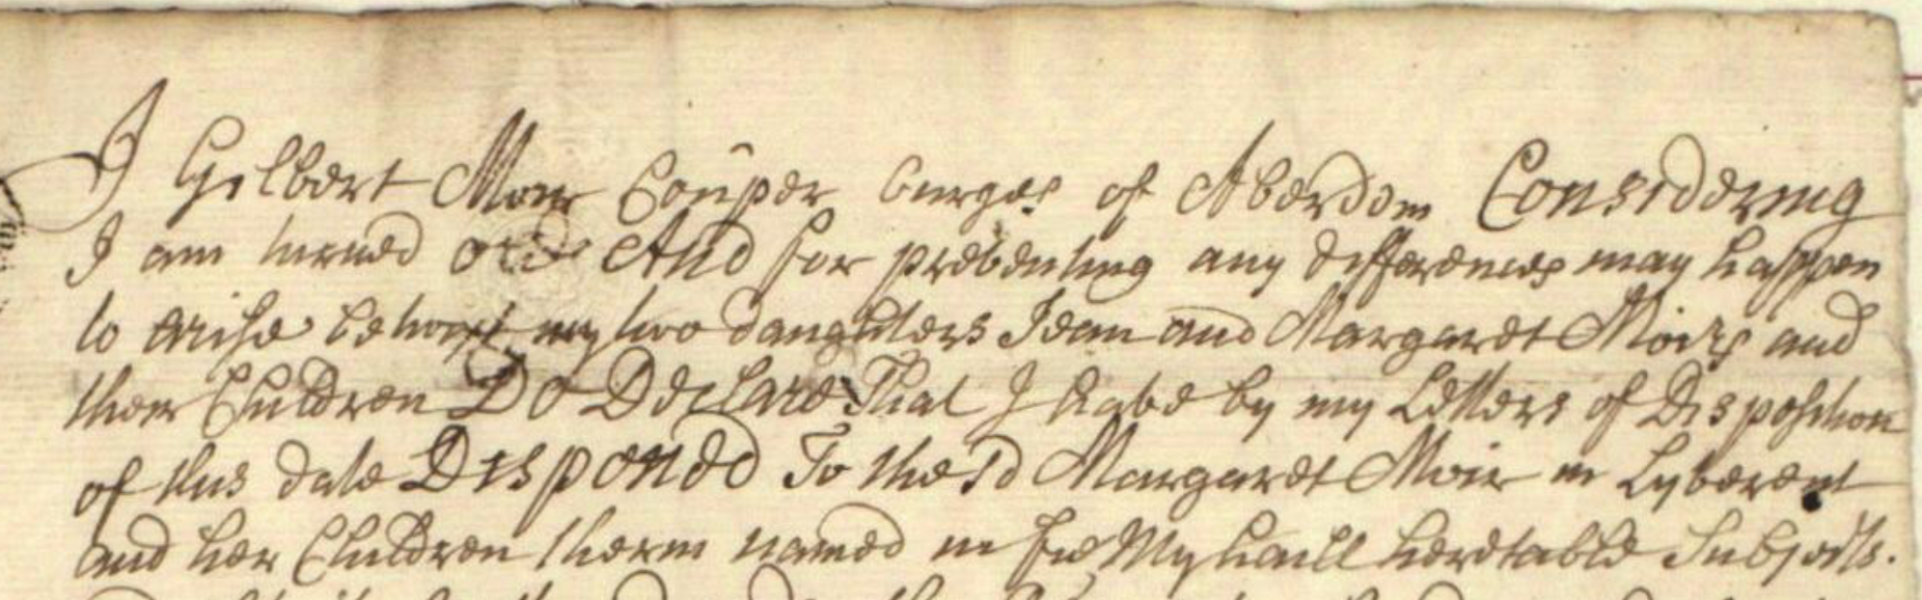 I Gilbert Moir Couper burges of Aberdein Considering
I am turned old And for preventing any differences may happen
to arise betwixt my two daughters Jean and Margaret Moirs and
their Children Do Declare That I have by my Letters of Disposition
of this date Disponed To the sd Margaret Moir in Lyferent
and her Children therin named in fie My haill heretable Subjects.